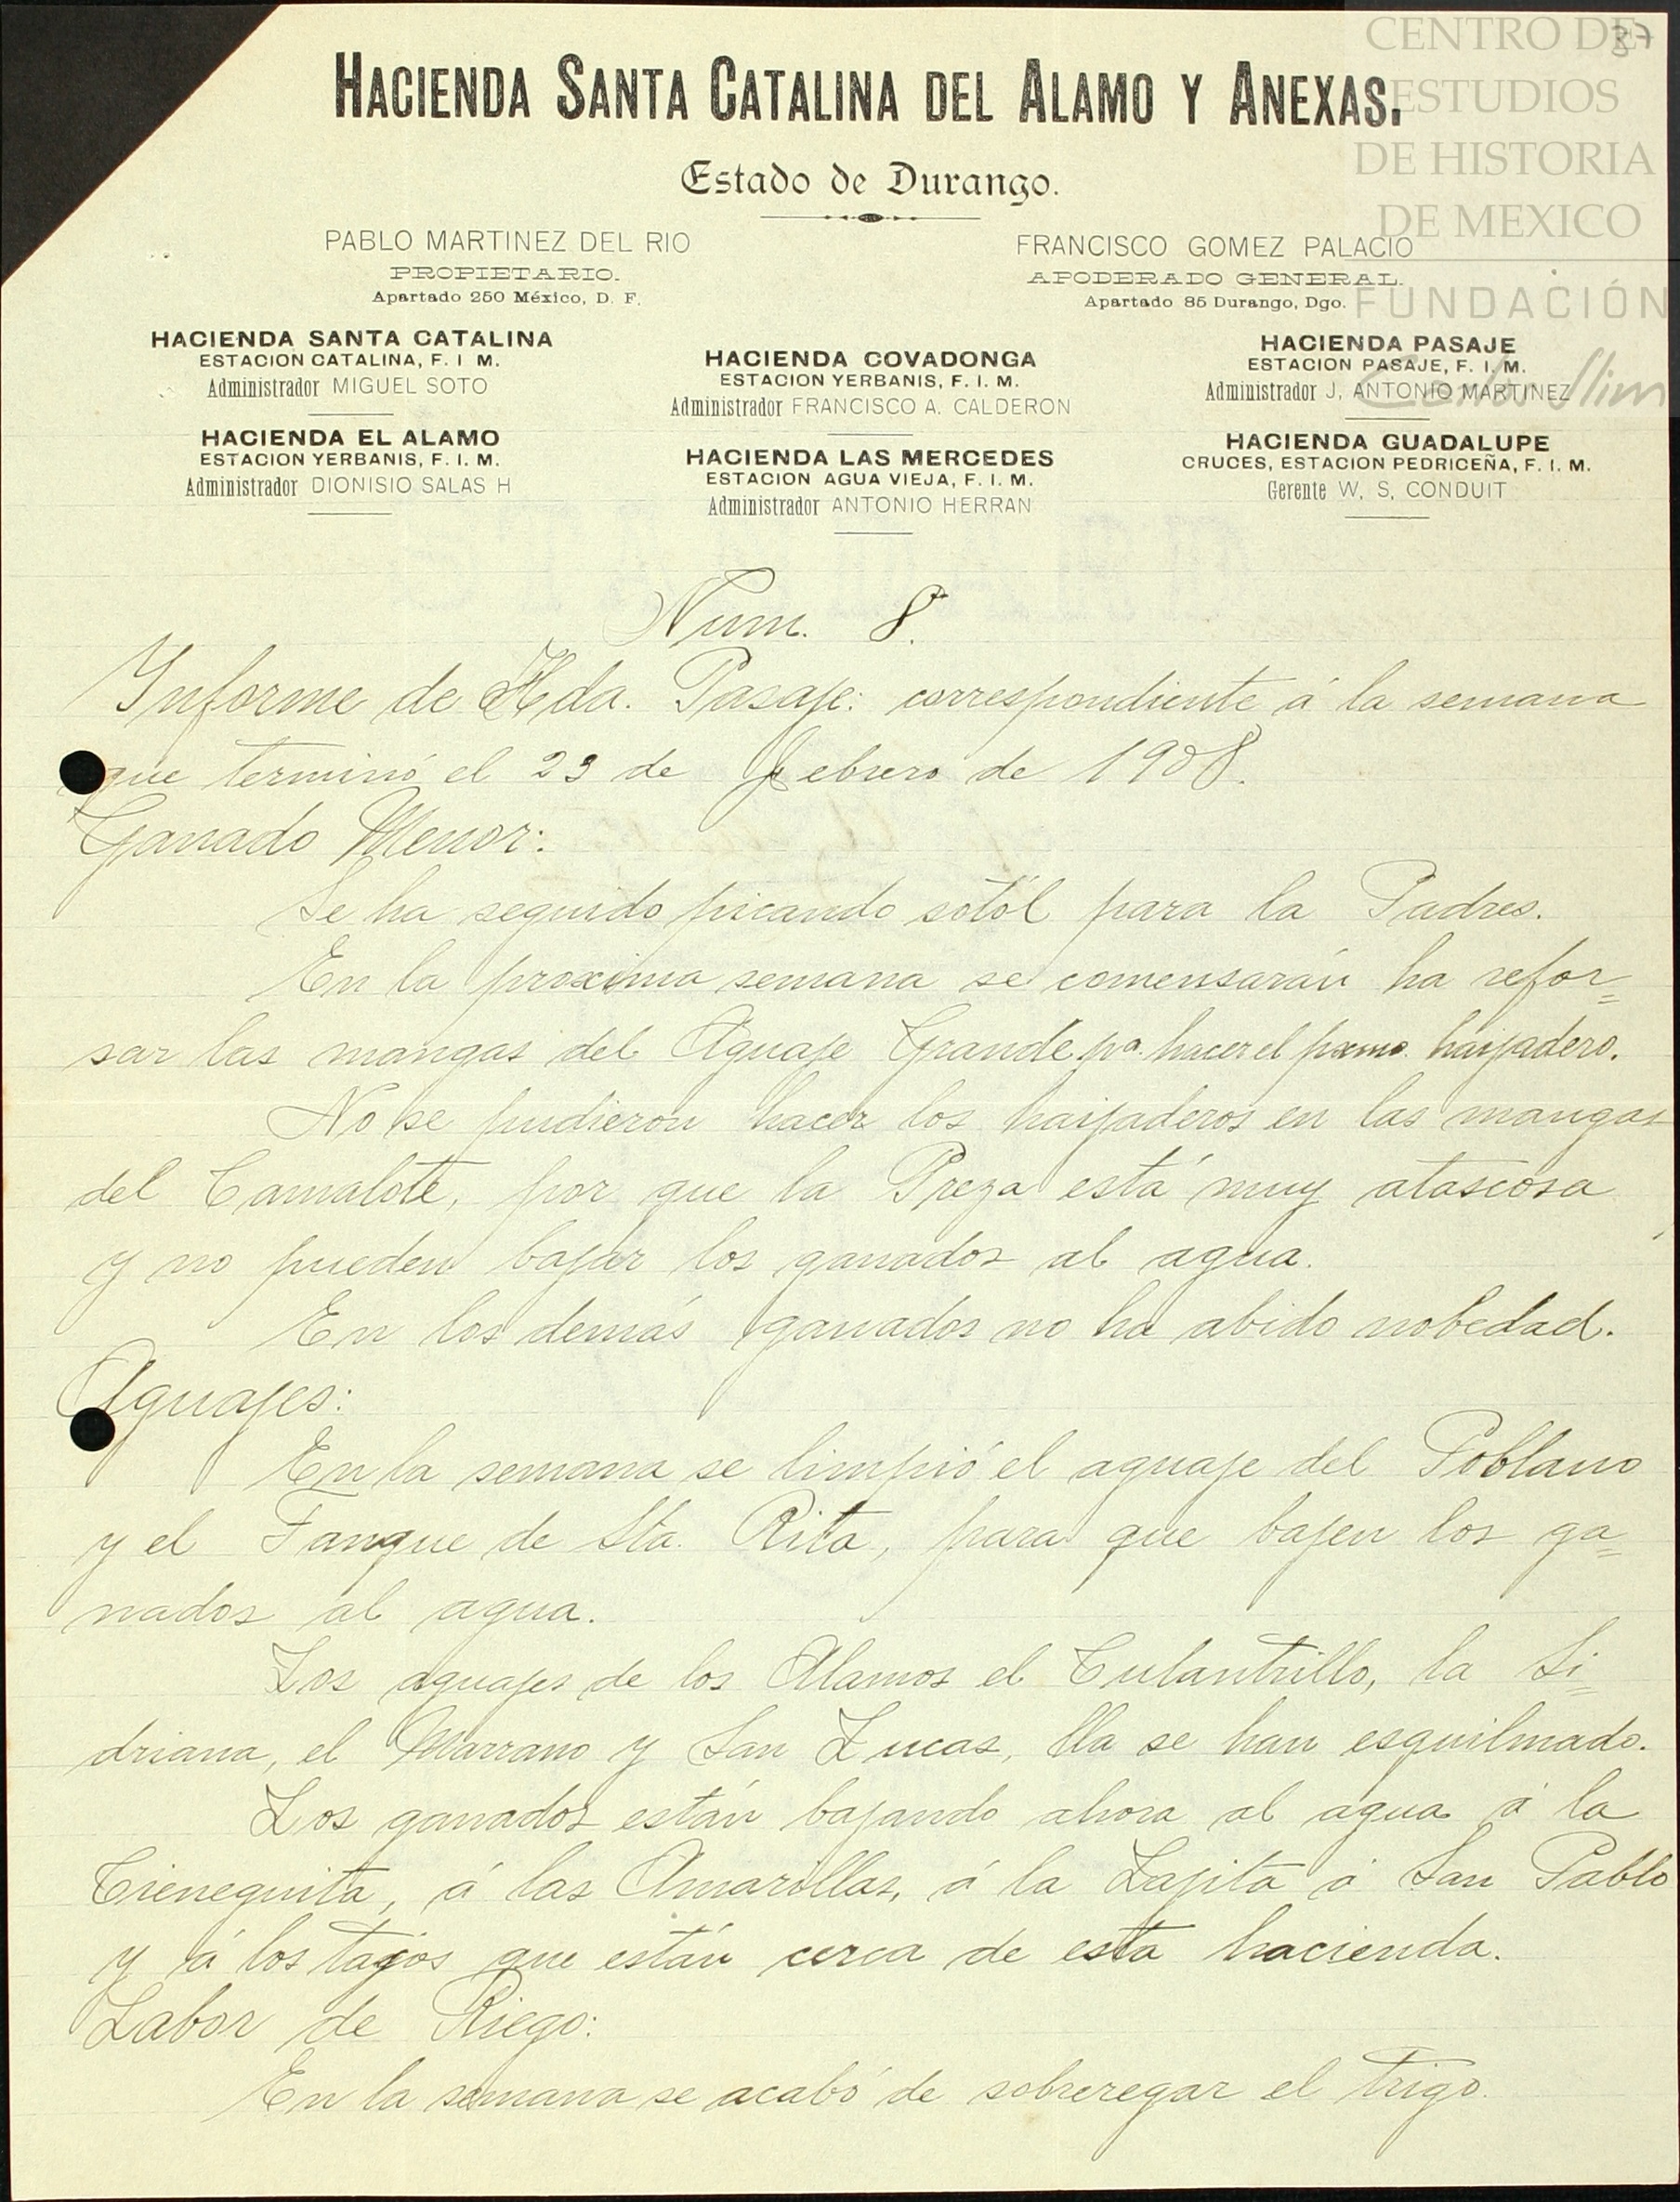 CENTRO DE
ESTUDIOS
DE HISTORIA
DE MEXICO
FUNDACIÓN
Carlos Slim
37
HACIENDA SANTA CATALINA DEL ALAMO Y ANEXAS.
Estado de Durango.
PABLO MARTINEZ DEL RIO
PROPIETARIO.
Apartado 250 México, D. F.
FRANCISCO GOMEZ PALACIO
APODERADO GENERAL.
Apartado 85 Durango, Dgo.
HACIENDA SANTA CATALINA
ESTACION CATALINA, F. I M.
Administrador MIGUEL SOTO
HACIENDA EL ALAMO
ESTACION YERBANIS, F. I. M.
Administrador DIONISIO SALAS H
HACIENDA COVADONGA
ESTACION YERBANIS, F. I. M.
Administrador FRANCISCO A. CALDERON
HACIENDA LAS MERCEDES
ESTACION AGUA VIEJA, F. I. M.
Administrador ANTONIO HERRAN
HACIENDA PASAJE
ESTACION PASAJE, F. I. M.
Administrador J, ANTONIO MARTINEZ
HACIENDA GUADALUPE
CRUCES, ESTACION PEDRICEÑA, F. I. M.
Gerente W, S, CONDUIT
Num. 8.
Informe de Hda. Pasaje: correspondiente á la semana
que terminó el 23 de febrero de 1908.
Ganado Menor:
Se ha seguido picando sotól para la Padres.
En la proxima semana se comensarán ha refor=
sar las mangas del Aguaje Grande pa. hacer el haijadero.
No se pudieron hacer los haijaderos en las mangas
del Camalote, por que la Preza está muy atascosa
y no pueden bajar los ganados al agua.
En los demás ganados no ha abido nobedad.
Aguajes:
En la semana se limpió el aguaje del Poblano
y el Tanque de Sta. Rita, para que bajen los ga=
nados al agua.
Los aguajes de los Alamos el Culantrillo, la Si=
driana, el Marrano y San Lucas, lla se han esquilmado.
Los ganados están bajando ahora al agua á la
Cieneguita, á las Amarillas, á la Lajita á San Pablo
y á los tajos que están cerca de esta hacienda.
Labor de Riego:
En la semana se acabó de sobreregar el trigo.